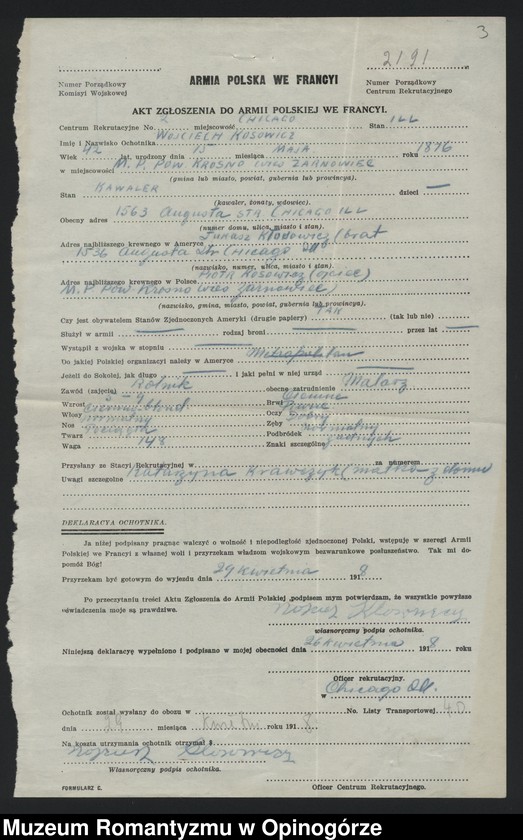 3
2191
Numer Porządkowy
Komisyi Wojskowej
ARMIA POLSKA WE FRANCYI
Numer Porządkowy
Centrum Rekrutacyjnego
AKT ZGŁOSZENIA DO ARMII POLSKIEJ WE FRANCYI.
Centrum Rekrutacyjne No. 2 miejscowość CHICAGO Stan ILL
Imię i Nazwisko Ochotnika WOJCIECH KOSOWICZ
Wiek 42 lat, urodzony dnia 15 miesiąca MAJA roku 1876
w miejscowości M.P. POW KROSNO WIEŚ ŻARNOWIEC
(gmina lub miasto, powiat, gubernia lub prowincya).
Stan KAWALER dzieci —
(kawaler, żonaty, wdowiec).
Obecny adres 1563 Augusta STR. CHICAGO ILL
(numer domu, ulica, miasto i stan).
Adres najbliższego krewnego w Ameryce Łukasz Kłodowicz (brat
1536 Augusta Str Chicago Ill
(nazwisko, numer, ulica, miasto i stan).
Adres najbliższego krewnego w Polsce PIOTR KOSOWICZ (ojciec)
M.P. POW Krosno (wieś Żarnowiec)
(nazwisko, gmina, miasto, powiat, gubernia lub prowincya).
Czy jest obywatelem Stanów Zjednoczonych Ameryki (drugie papiery) TAK (tak lub nie)
Służył w armii — rodzaj broni — przez lat —
Wystąpił z wojska w stopniu —
Do jakiej Polskiej organizacyi należy w Ameryce Metropolitan
Jeżeli do Sokołej, jak długo — i jaki pełni w niej urząd —
Zawód (zajęcie) Rolnik obecne zatrudnienie Malarz
Wzrost 5-9 Brwi Ciemne
Włosy Oczy
Nos Zęby Dobry
Twarz Podbródek
Waga 148 Znaki szczególne żadnych
Przysłany ze Stacyi Rekrutacyjnej w za numerem
Uwagi szczególne Katarzyna Krawczyk (matka z domu
DEKLARACYA OCHOTNIKA.
Ja niżej podpisany pragnąc walczyć o wolność i niepodległość zjednoczonej Polski, wstępuję w szeregi Armii
Polskiej we Francyi z własnej woli i przyrzekam władzom wojskowym bezwarunkowe posłuszeństwo. Tak mi do-
pomóż Bóg!
Przyrzekam być gotowym do wyjazdu dnia 29 kwietnia 1918
Po przeczytaniu treści Aktu Zgłoszenia do Armii Polskiej podpisem mym potwierdzam, że wszystkie powyższe
oświadczenia moje są prawdziwe.
własnoręczny podpis ochotnika.
Niniejszą deklarację wypełniono i podpisano w mojej obecności dnia 26 kwietnia 1918 roku
Oficer rekrutacyjny.
w Chicago Ill.
Ochotnik został wysłany do obozu w No. Listy Transportowej 40
dnia 29 miesiąca Kwietnia roku 1918
Na koszta utrzymania ochotnik otrzymał $
Własnoręczny podpis ochotnika.
FORMULARZ C.
Oficer Centrum Rekrutacyjnego.
Muzeum Romantyzmu w Opinogórze